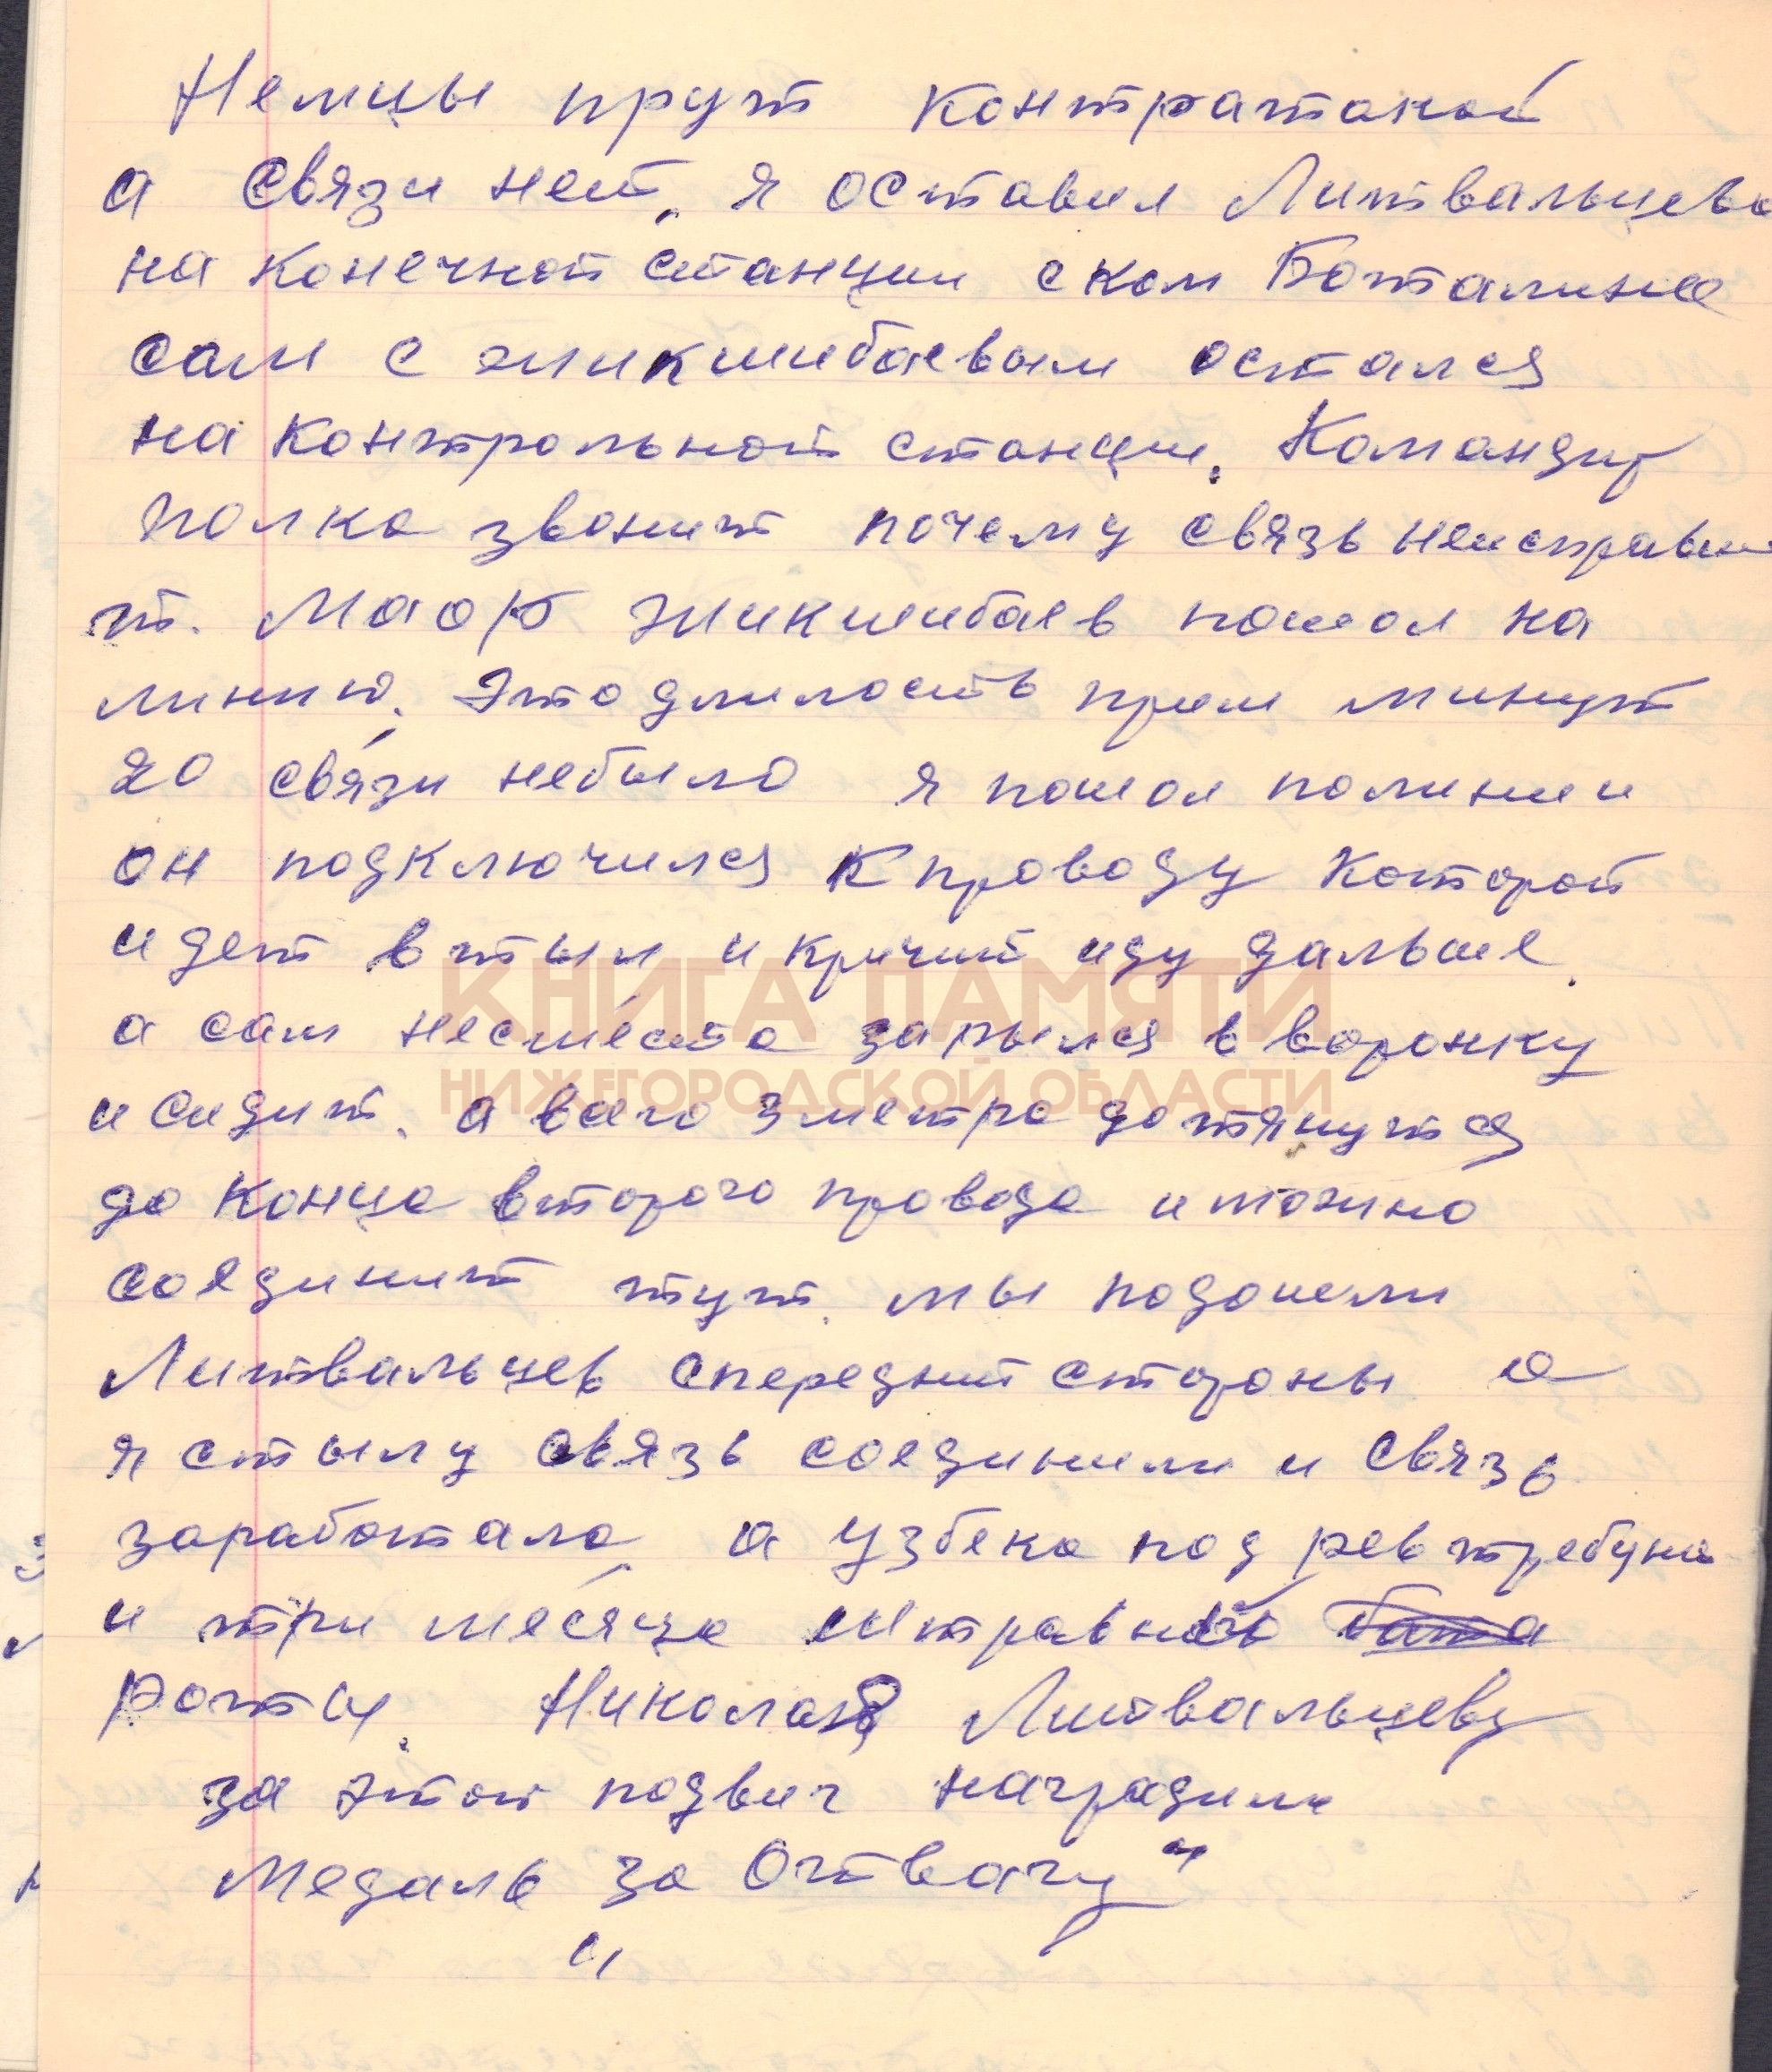 Немцы прут контратакой
а связи нет. я оставил Литвальцева
на конечной станции с ком Батальёна
сам с жикишибаевым остался
на контрольной станции. Командир
полка звонит почему связь неисправи
т. жикишибаев пошол на
линию. Это длилось прим минут
20 связи небыло я пошол полинии
он подключился к проводу которой
идет в тыл и кричит иду дальше.
а сам нес места зарылся в воронку
и сидит. а всего 3 метра дотянутся
до конца второго провода и можно
соединит тут. мы подошли
Литвальцев спередний стороны а
я стылу связь соединили и связь
заработала, а узбека под ревтребуна
и три месяца штравной
роты. Николаю Литвальцеву
за этот подвиг наградили
Медаль "за Отвагу"
КНИГА ПАМЯТИ
НИЖЕГОРОДСКОЙ ОБЛАСТИ